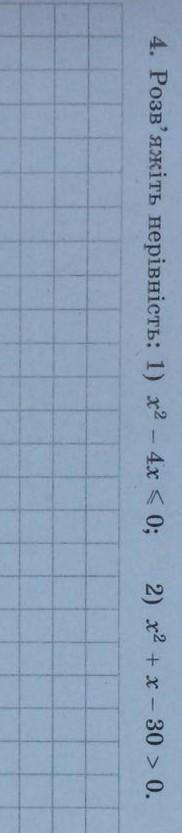 4. Розв’яжіть нерівність: 1) x² – 4x ⩽ 0; 2) x² + x – 30 > 0.